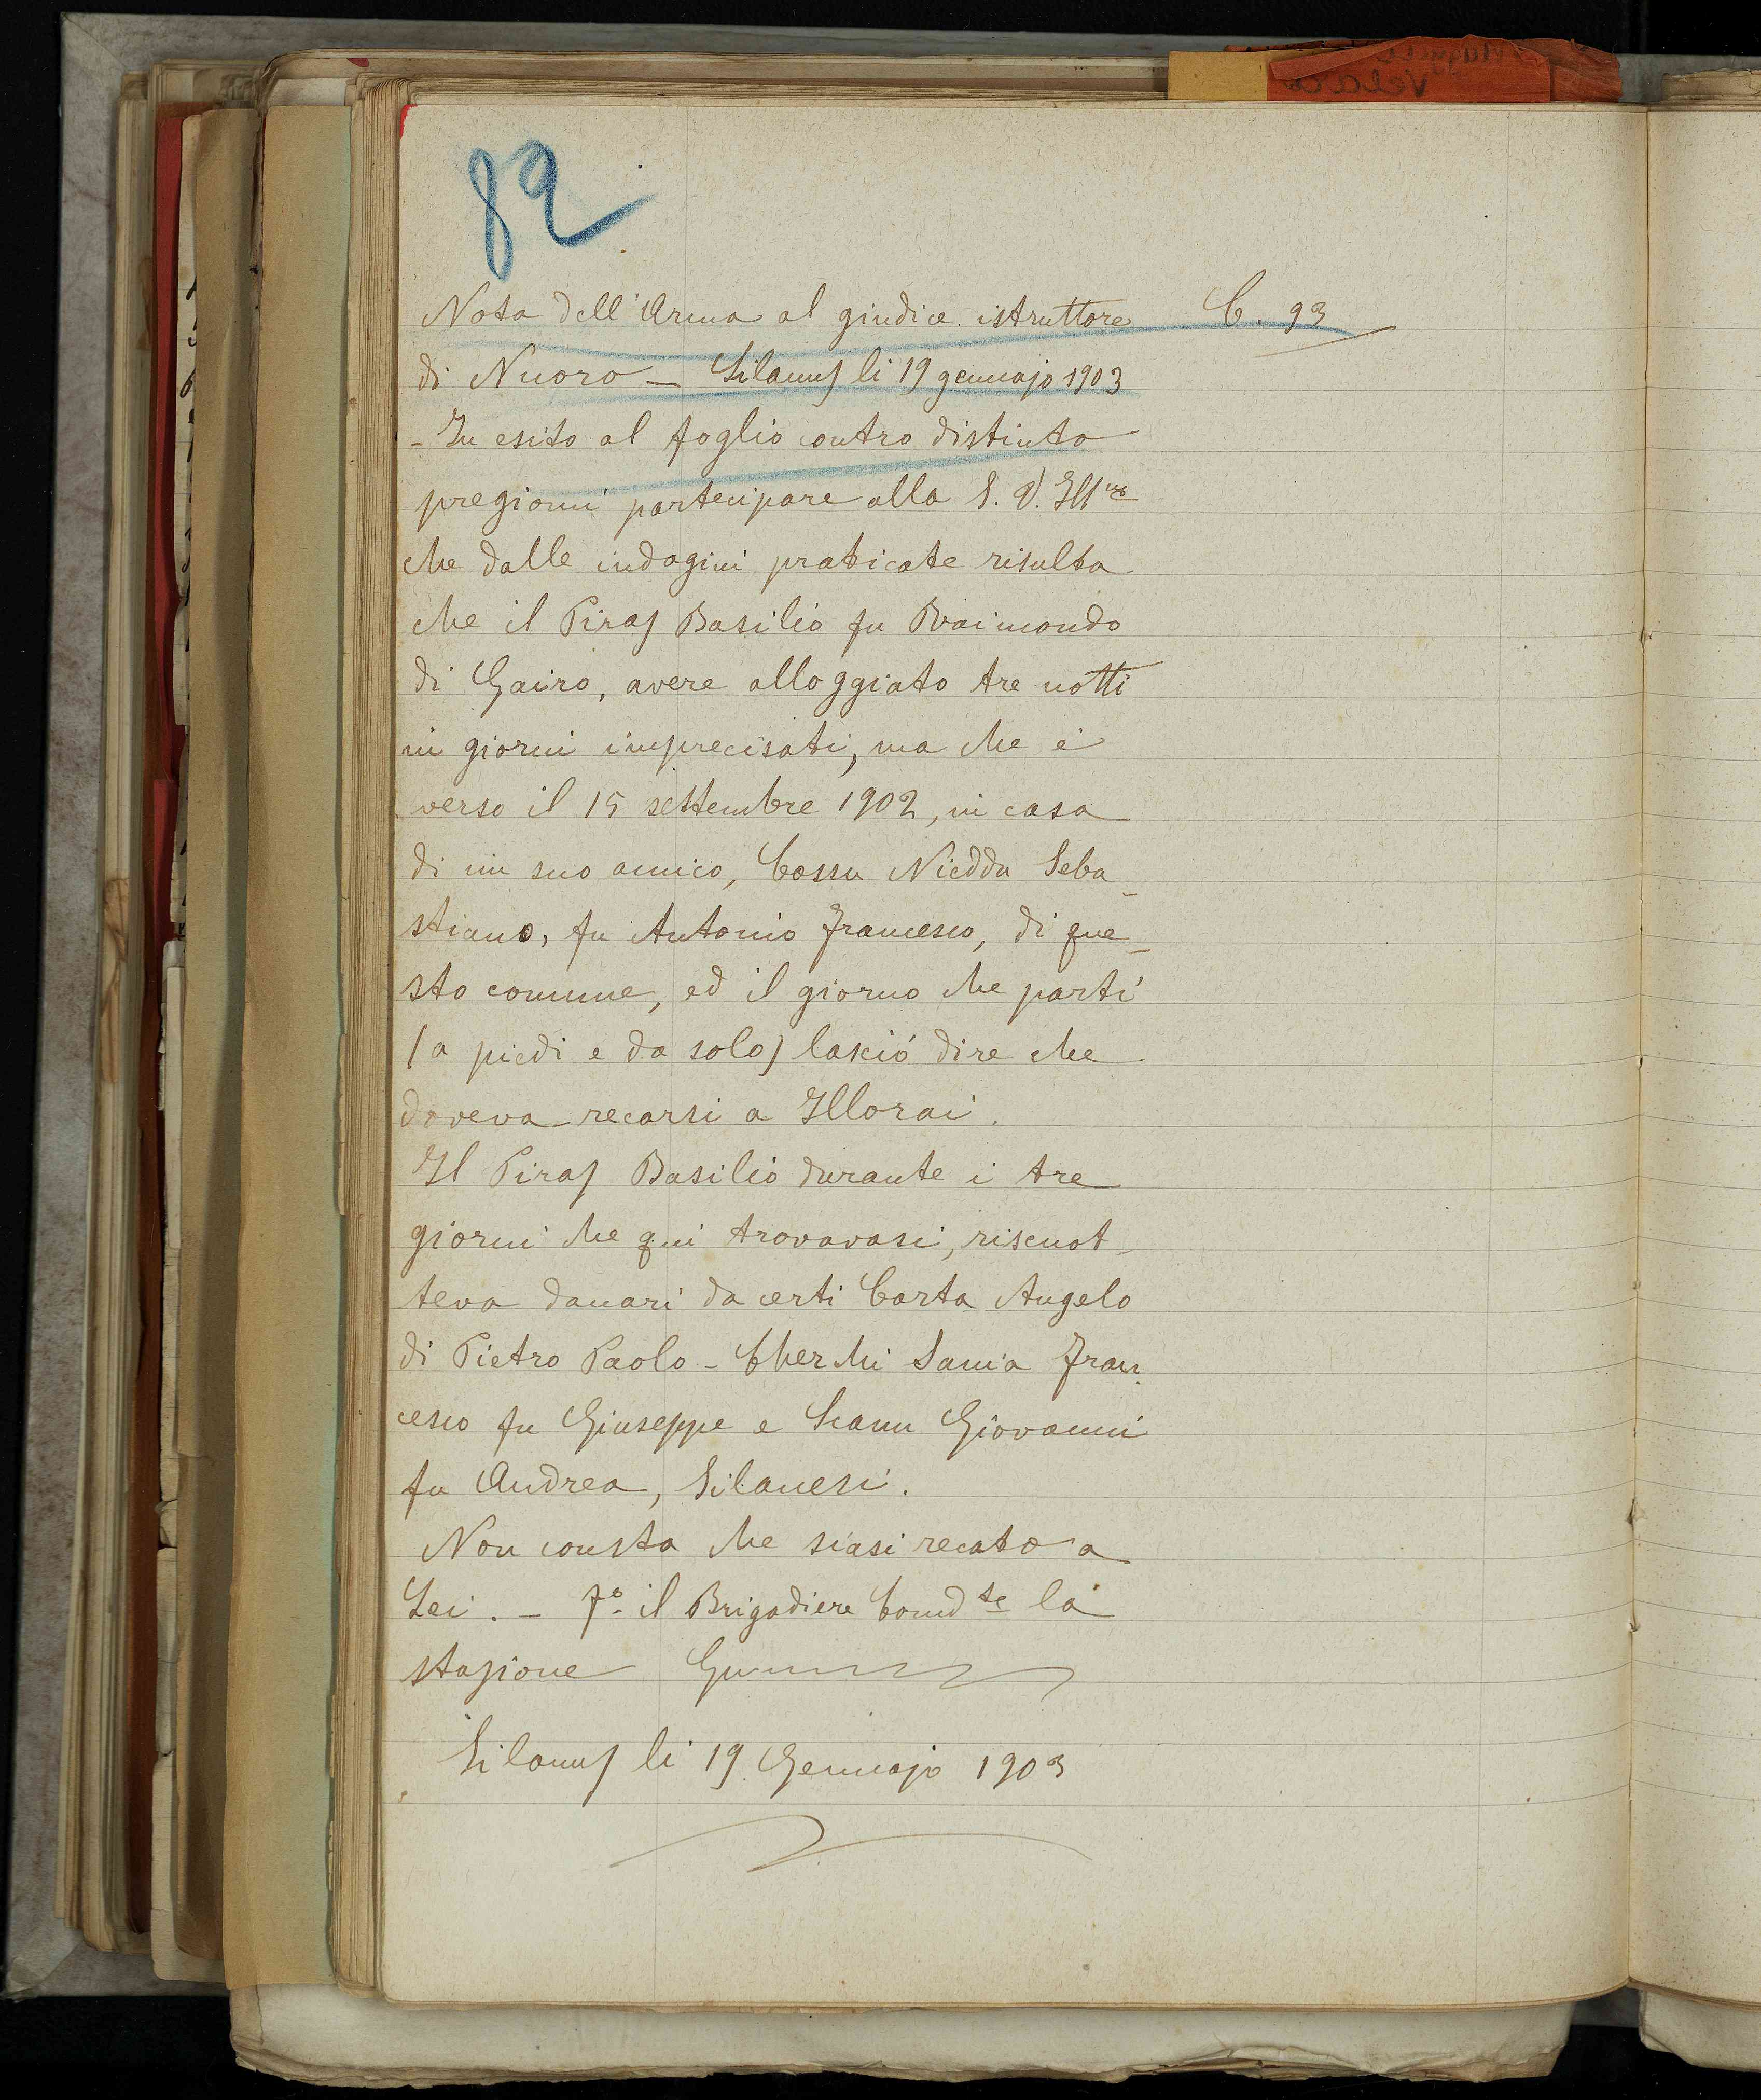 82
Nota dell'Arma al giudice istruttore C. 93
di Nuoro — Silanus li 19 gennajo 1903
- In esito al foglio contro distinto
pregiomi partecipare alla S. V. Ill<sup>ma</sup>
che dalle indagini praticate risulta
che il Piras Basilio fu Raimondo
di Gairo, avere alloggiato tre notti
in giorni imprecisati, ma che è
verso il 15 settembre 1902, in casa
di un suo amico, Cossu Nieddu Seba-
stiano, fu Antonio Francesco, di que-
sto comune, ed il giorno che partì
(a piedi e da solo) lasciò dire che
doveva recarsi a Illorai.
Il Piras Basilio durante i tre
giorni che qui trovavasi, riscuot-
teva danari da certi Carta Angelo
di Pietro Paolo - Cherchi Sania Fran-
cesco fu Giuseppe e Scanu Giovanni
fu Andrea, Silanesi.
Non consta che siasi recato a
Lei. - F.º il Brigadiere Comd<sup>te</sup> la
stazione
Silanus li 19 Gennajo 1903